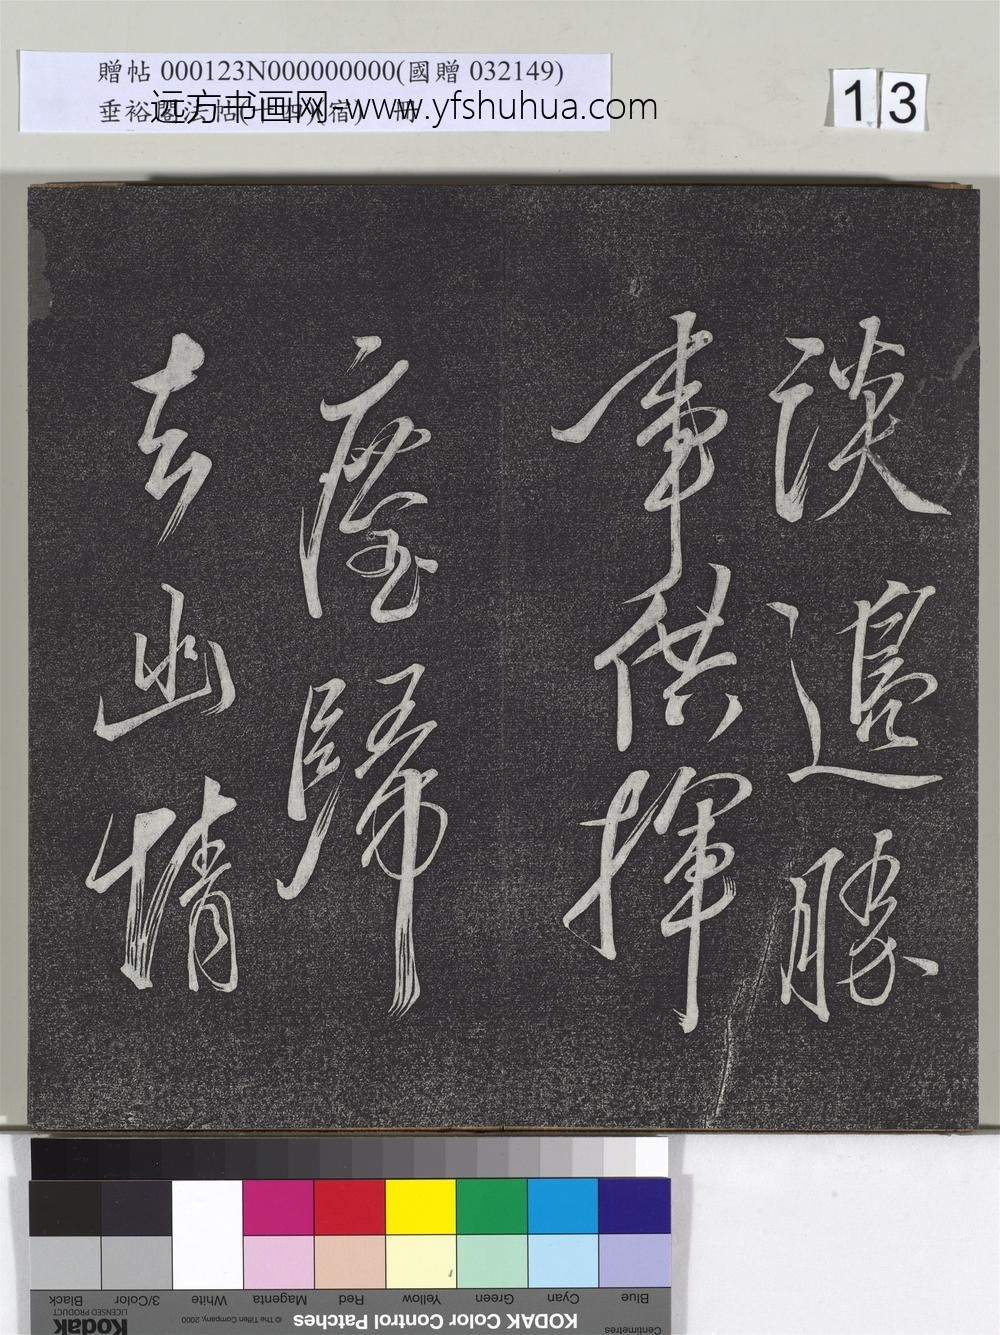 贈帖 000123N000000000(國贈 032149)
远方书画网-www.yfshuhua.com
垂裕閣法帖(十四)(宿) 冊
13
淡邊勝
事供揮
塵歸
去幽情
Blue
Cyan
Green
Yellow
Red
Magenta
White
3/Color
Black
Centimetres
KODAK Color Control Patches
© The Tiffen Company, 2000
Kodak
LICENSED PRODUCT